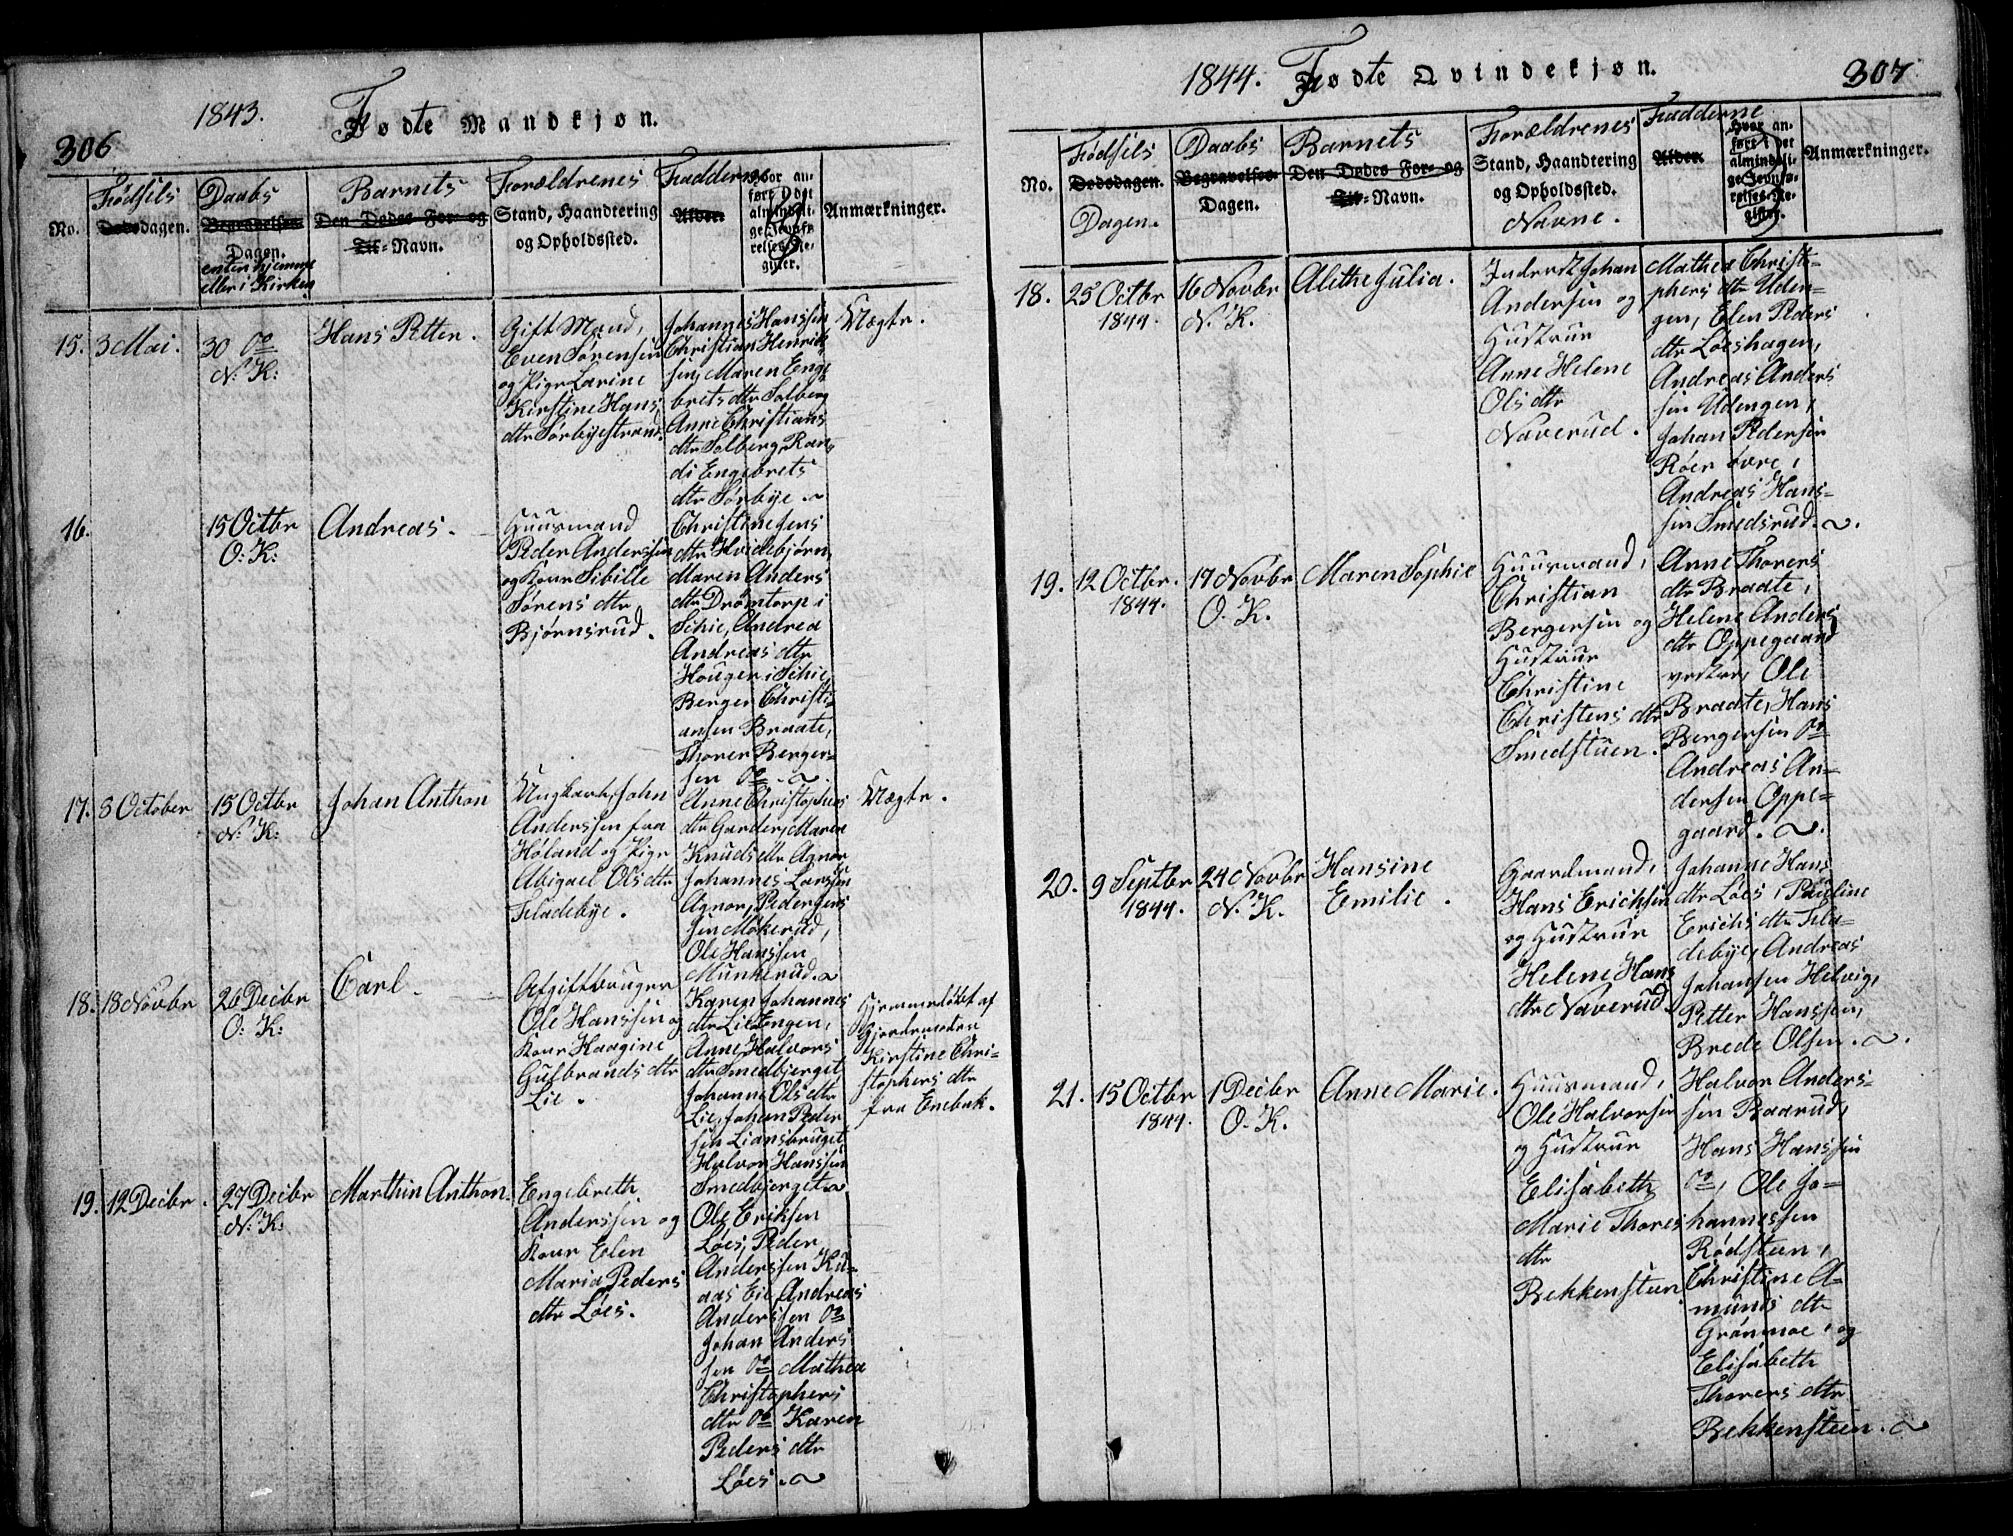 306
1843. Fødte Mandkjøn.
No.
Fødsils
Dødsdagen.
Daabs
Begravelses-
Dagen.
enten hjemme
eller i Kirken
Barnets
Den Dødes For- og
Til-Navn.
Forældrenes
Stand, Haandtering
og Opholdssted.
Fadderne
Alder.
Hvor an-
ført i Det
almindeli-
ge Jevnfø-
relses-Re-
gister.
Anmærkninger.
15. 3 Mai.
30 do
N. K:
Hans Petter.
Gift Mand,
Even Sørensen
og Pige Larine
Kirstine Hans
dtr Sørbyestrand.
Johannes Hanssen
Christian Henrik
sen, Maren Enge
brets dtr Solberg
Anne Christians
dtr Solberg, Ran
di Engebrets
dtr Sørbye.
Uægte.
16.
15 Octbr
O: K:
Andreas.
Huusmand
Peder Anderssen
og Kone Sibille
Sørens dtr
Bjørnsrud.
Christine Jens
dtr Hvidebjørn,
Maren Anders
dtr Drømtorp i
Schie, Andrea
Andreas dtr
Houger i Schie,
Berger Christi-
ansen Braate,
Thorer Berger-
sen do.
17. 8 October
15 Octbr
N. K:
Johan Anthon
Ungkarl John
Anderssen fra
Høland og Pige
Abigael Ols dtr
Fladebye.
Anne Christophers
dtr Garder, Maren
Knuds dtr Agnor
Johannes Larssen
Agnor, Peder Jens
sen Møkerud,
Ole Hanssen
Munkerud.
Uægte.
18. 18 Novbr
26 Decbr
O: K:
Carl
Afgiftbruger
Ole Hanssen og
Kone Kaagine
Gulbrands dtr
Lie.
Karen Johannes
dtr Lie Engen,
Anne Halvors
dtr Smedbjerget
Johanne Ols dtr
Lie, Johan Peder
sen Liansbruget,
Halvor Hanssen
Smedbjerget
Hjemmedøbt af
Gjordemoder
Kirstine Chri-
stophers dtr
fra Enebak.
19. 12 Decbr.
27 Decbr
N. K:
Marthin Anthon.
Engebreth
Anderssen og
Kone Elen
Maria Peders
dtr Løes.
Ole Eriksen
Løes, Peder
Anderssen Ka-
aas Eie, Andreas
Anderssen do
Johan Anders
sen do Mathea
Christophers
dtr do Karen
Peders dtr
Løes.
1844. Fødte Qvindekjøn.
307
No.
Fødsels
Dødsdagen.
Dagen.
Daabs
Begravelses-
Dagen.
Barnets
Den Dødes For- og
Til-Navn.
Forældrenes
Stand, Haandtering
og Opholdssted.
Navne.
Fadderne
Alder.
Hvor an-
ført i Det
almindeli-
ge Jevnfø-
relses-Re-
gister.
Anmærkninger.
18. 25 Octbr
1844.
16 Novbr
N. K.
Alethe Julia.
Inderst Johan
Andersen og
Hustrue
Anne Helene
Ols dtr
Naverud.
Mathea Christo-
phers dtr Uden-
gen, Elen Peders
dtr Løeshagen,
Andreas Anders
sen Udengen,
Johan Pedersen
Røer øvre,
Andreas Hans-
sen Smedsrud.
19. 12 Octbr.
1844.
17 Novbr
O. K.
Maren Sophie
Huusmand,
Christian
Bergersen og
Hustrue
Christine
Christens dtr
Smedstuen.
Anne Thorers
dtr Braate,
Helene Anders
dtr Oppegaard
vestre, Ole
Braate, Hans
Bergersen do
Andreas An-
dersen Oppe-
gaard.
20. 9 Septbr
1844.
24 Novbr
N. K.
Hansine
Emilie.
Gaardmand,
Hans Erichsen
og Hustrue
Helene Hans
dtr Naverud
Johanne Hans
dtr Løes, Pauline
Erichs dtr Fla-
debye, Andreas
Johansen Helvig,
Petter Hanssen,
Brede Olsen.
21. 15 Octbr
1844.
1 Decbr
O. K.
Anne Marie.
Huusmand,
Ole Halvorsen
og Hustrue
Elisabeth
Marie Thores
dtr
Bekkensteen
Halvor Anders-
sen Baarud,
Hans Hanssen
do, Ole Jo-
hannessen
Rødsteen,
Christine A-
munds dtr
Grønmoe, og
Elisabeth
Thorers dtr
Bekkensteen.